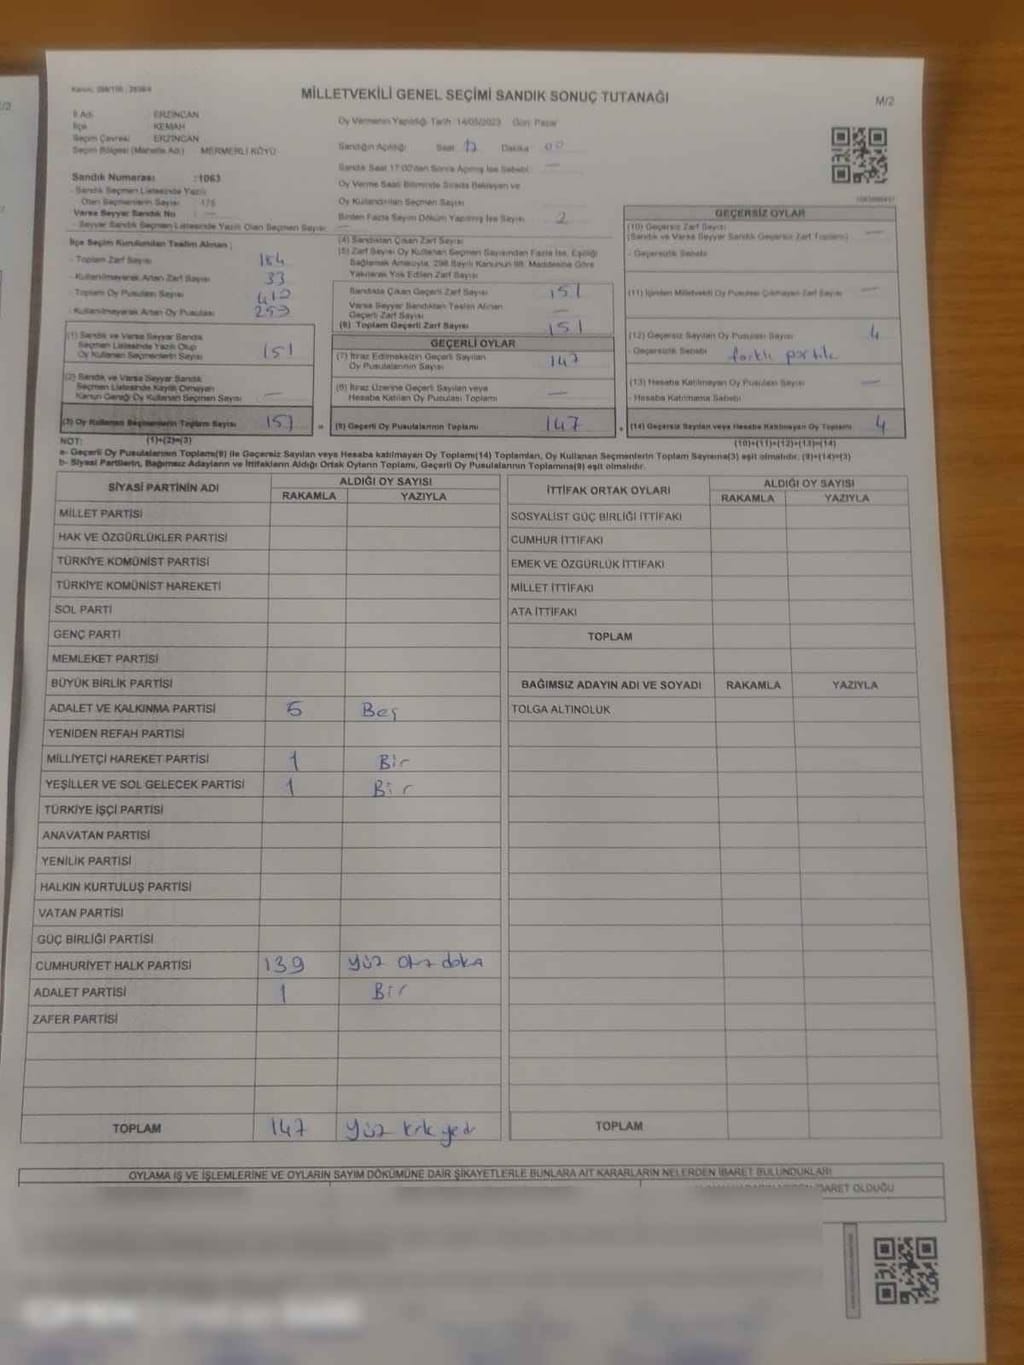 MİLLETVEKİLİ GENEL SEÇİMİ SANDIK SONUÇ TUTANAĞI
M/2
İl Adı ERZİNCAN
İlçe KEMAH
Seçim Çevresi ERZİNCAN
Seçim Bölgesi (Mahalle Adı) MERMERLİ KÖYÜ
Oy Vermenin Yapıldığı Tarih 14/05/2023 Gün: Pazar
Sandığın Açıldığı Saat 17 Dakika 00
Sandık Saat 17:00'den Sonra Açılmış İse Sebebi
Oy Verme Saati Bitiminde Sırada Bekleyen ve
Oy Kullandırılan Seçmen Sayısı
Birden Fazla Sayım Döküm Yapılmış İse Sayısı 2
Sandık Numarası :1063
- Sandık Seçmen Listesinde Yazılı
Olan Seçmenlerin Sayısı 175
Varsa Seyyar Sandık No
- Seyyar Sandık Seçmen Listesinde Yazılı Olan Seçmen Sayısı
İlçe Seçim Kurulundan Teslim Alınan ;
- Toplam Zarf Sayısı 184
- Kullanılmayarak Artan Zarf Sayısı 33
- Toplam Oy Pusulası Sayısı 410
- Kullanılmayarak Artan Oy Pusulası 259
(1) Sandık ve Varsa Seyyar Sandık
Seçmen Listesinde Yazılı Olup
Oy Kullanan Seçmenlerin Sayısı 151
(2) Sandık ve Varsa Seyyar Sandık
Seçmen Listesinde Kaydı Olmayan
Kanun Gereği Oy Kullanan Seçmen Sayısı
(3) Oy Kullanan Seçmenlerin Toplam Sayısı 151
(4) Sandıktan Çıkan Zarf Sayısı
(5) Zarf Sayısı Oy Kullanan Seçmen Sayısından Fazla İse, Eşitliği
Bağlamak Amacıyla, 298 Sayılı Kanunun 98. Maddesine Göre
Yakılarak Yok Edilen Zarf Sayısı
Sandıkta Çıkan Geçerli Zarf Sayısı 151
Varsa Seyyar Sandıktan Teslim Alınan
Geçerli Zarf Sayısı
(6) Toplam Geçerli Zarf Sayısı 151
GEÇERLİ OYLAR
(7) İtiraz Edilmeksizin Geçerli Sayılan
Oy Pusulalarının Sayısı 147
(8) İtiraz Üzerine Geçerli Sayılan veya
Hesaba Katılan Oy Pusulası Toplamı
(9) Geçerli Oy Pusulalarının Toplamı 147
GEÇERSİZ OYLAR
(10) Geçersiz Zarf Sayısı
(Sandık ve Varsa Seyyar Sandık Geçersiz Zarf Toplamı)
- Geçersizlik Sebebi
(11) İçinden Milletvekili Oy Pusulası Çıkmayan Zarf Sayısı
(12) Geçersiz Sayılan Oy Pusulası Sayısı 4
- Geçersizlik Sebebi farklı partile
(13) Hesaba Katılmayan Oy Pusulası Sayısı
- Hesaba Katılmama Sebebi
(14) Geçersiz Sayılan veya Hesaba Katılmayan Oy Toplamı 4
NOT: (1)+(2)=(3)
(10)+(11)+(12)+(13)=(14)
a- Geçerli Oy Pusulalarının Toplamı(9) ile Geçersiz Sayılan veya Hesaba katılmayan Oy Toplamı(14) Toplamları, Oy Kullanan Seçmenlerin Toplam Sayısına(3) eşit olmalıdır. (9)+(14)=(3)
b- Siyasi Partilerin, Bağımsız Adayların ve İttifakların Aldığı Ortak Oyların Toplamı, Geçerli Oy Pusulalarının Toplamına(9) eşit olmalıdır.
SİYASİ PARTİNİN ADI
ALDIĞI OY SAYISI
RAKAMLA YAZIYLA
MİLLET PARTİSİ
HAK VE ÖZGÜRLÜKLER PARTİSİ
TÜRKİYE KOMÜNİST PARTİSİ
TÜRKİYE KOMÜNİST HAREKETİ
SOL PARTİ
GENÇ PARTİ
MEMLEKET PARTİSİ
BÜYÜK BİRLİK PARTİSİ
ADALET VE KALKINMA PARTİSİ 5 Beş
YENİDEN REFAH PARTİSİ
MİLLİYETÇİ HAREKET PARTİSİ 1 Bir
YEŞİLLER VE SOL GELECEK PARTİSİ 1 Bir
TÜRKİYE İŞÇİ PARTİSİ
ANAVATAN PARTİSİ
YENİLİK PARTİSİ
HALKIN KURTULUŞ PARTİSİ
VATAN PARTİSİ
GÜÇ BİRLİĞİ PARTİSİ
CUMHURİYET HALK PARTİSİ 139 yüz otuz dokuz
ADALET PARTİSİ 1 Bir
ZAFER PARTİSİ
TOPLAM 147 yüz kırk yedi
İTTİFAK ORTAK OYLARI
ALDIĞI OY SAYISI
RAKAMLA YAZIYLA
SOSYALİST GÜÇ BİRLİĞİ İTTİFAKI
CUMHUR İTTİFAKI
EMEK VE ÖZGÜRLÜK İTTİFAKI
MİLLET İTTİFAKI
ATA İTTİFAKI
TOPLAM
BAĞIMSIZ ADAYIN ADI VE SOYADI RAKAMLA YAZIYLA
TOLGA ALTINOLUK
TOPLAM
OYLAMA İŞ VE İŞLEMLERİNE VE OYLARIN SAYIM DÖKÜMÜNE DAİR ŞİKAYETLERLE BUNLARA AİT KARARLARIN NELERDEN İBARET BULUNDUKLARI
İBARET OLDUĞU